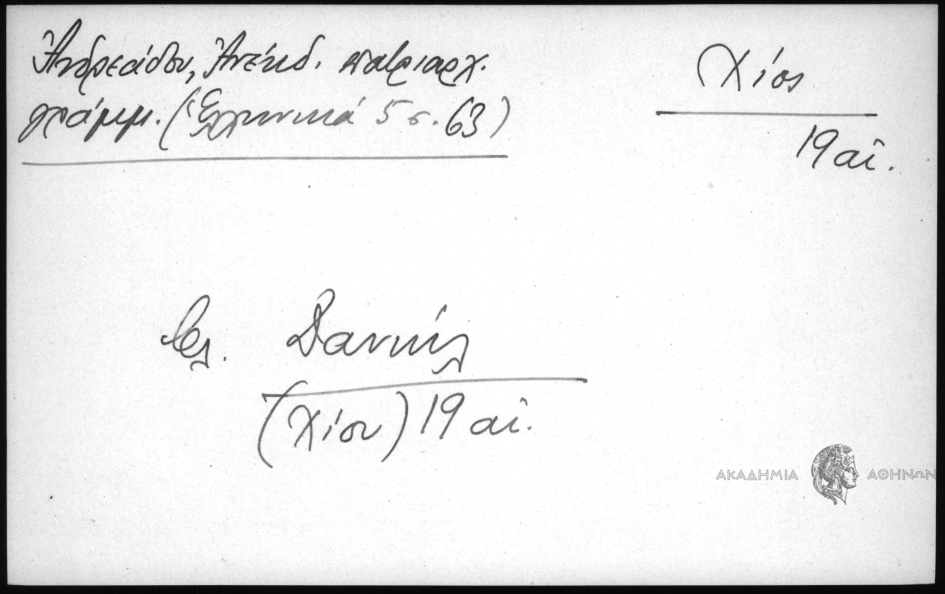 Ἀνδρεάδου, Ἀνέκδ. πατριαρχ.
γράμμ. (Ἑλληνικά 5 σ. 63)
Χίος
19 αἰ.
βλ. Δανιήλ
(Χίου) 19 αἰ.
ΑΚΑΔΗΜΙΑ ΑΘΗΝΩΝ